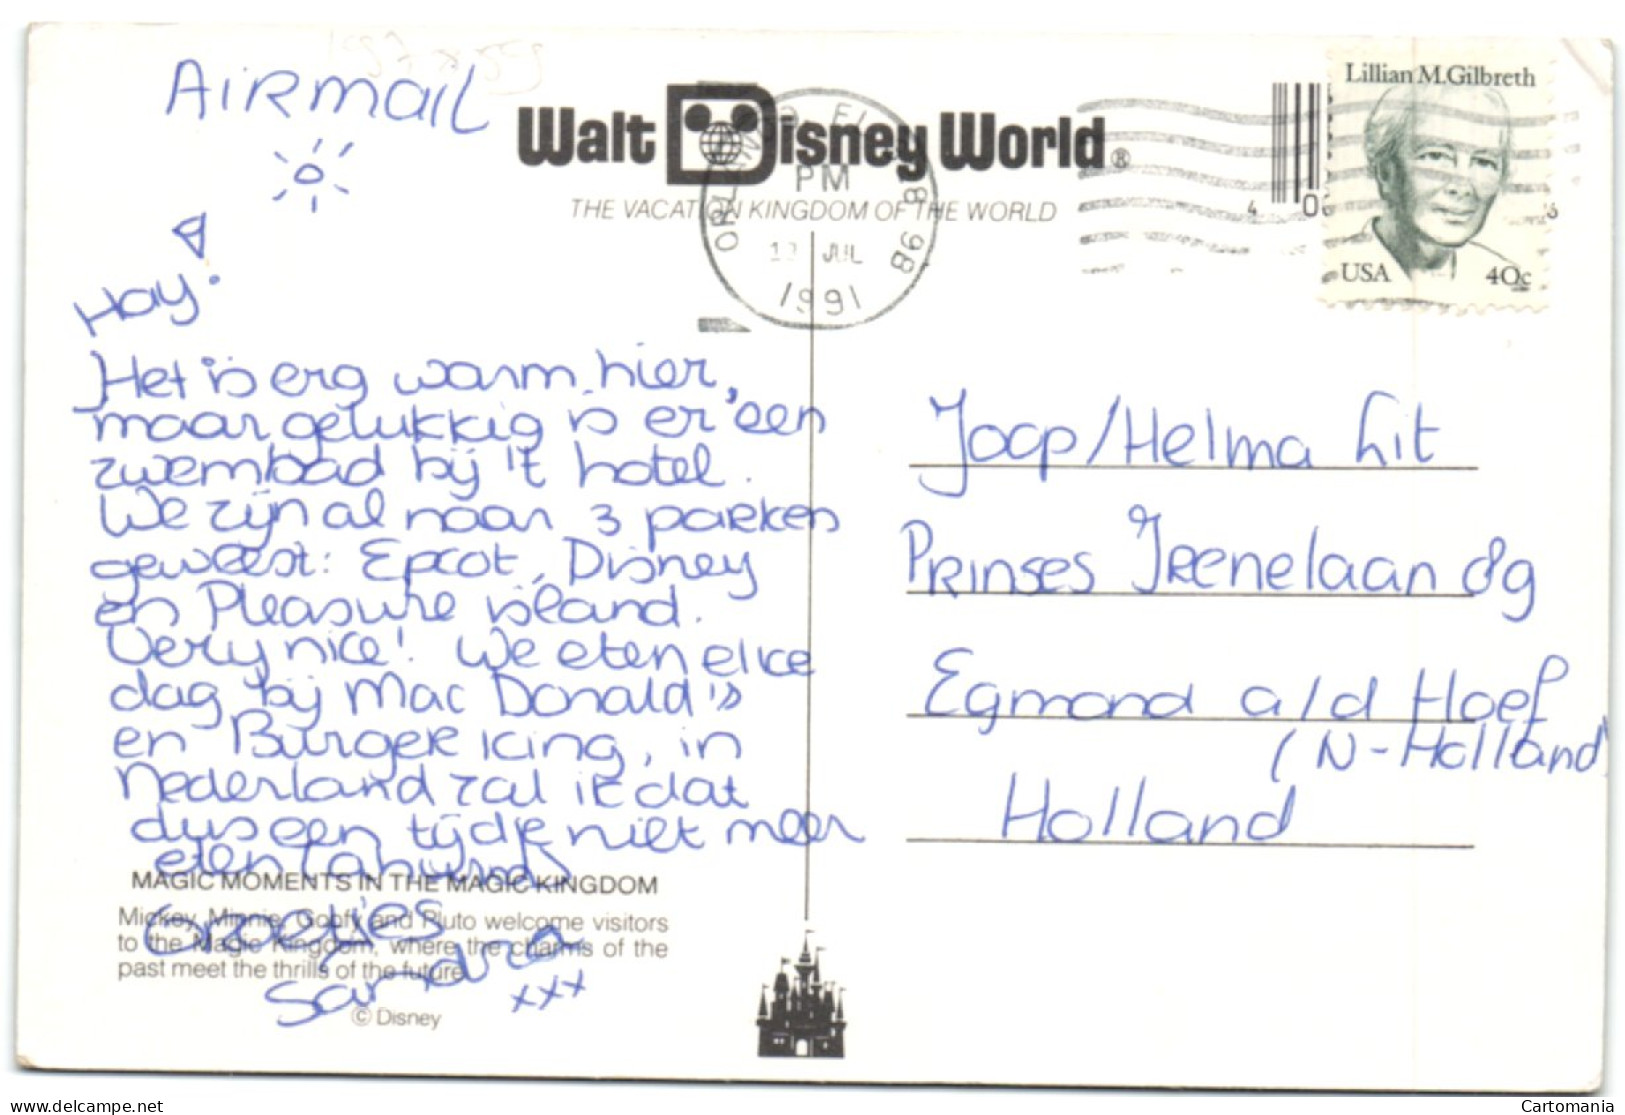 AiRmail
Walt Disney World®
THE VACATION KINGDOM OF THE WORLD
ORLANDO FL
PM
JUL
1991
Lillian M. Gilbreth
USA 40c
Hay!
Het is erg warm hier,
maar gelukkig is er een
zwembad bij 't hotel.
We zijn al naar 3 parken
geweest: Epcot, Disney
en Pleasure island.
Very nice! We eten elke
dag bij Mac Donald's
en Burger King, in
Nederland zal ik dat
dus een tijdje niet meer
eten
Groetjes
xxx
MAGIC MOMENTS IN THE MAGIC KINGDOM
Mickey, Minnie, Goofy and Pluto welcome visitors
to the Magic Kingdom, where the charms of the
past meet the thrills of the future.
© Disney
Joop/Helma Lit
Prinses Irenelaan 89
Egmond a/d Hoef
(N-Holland)
Holland
Cartomania